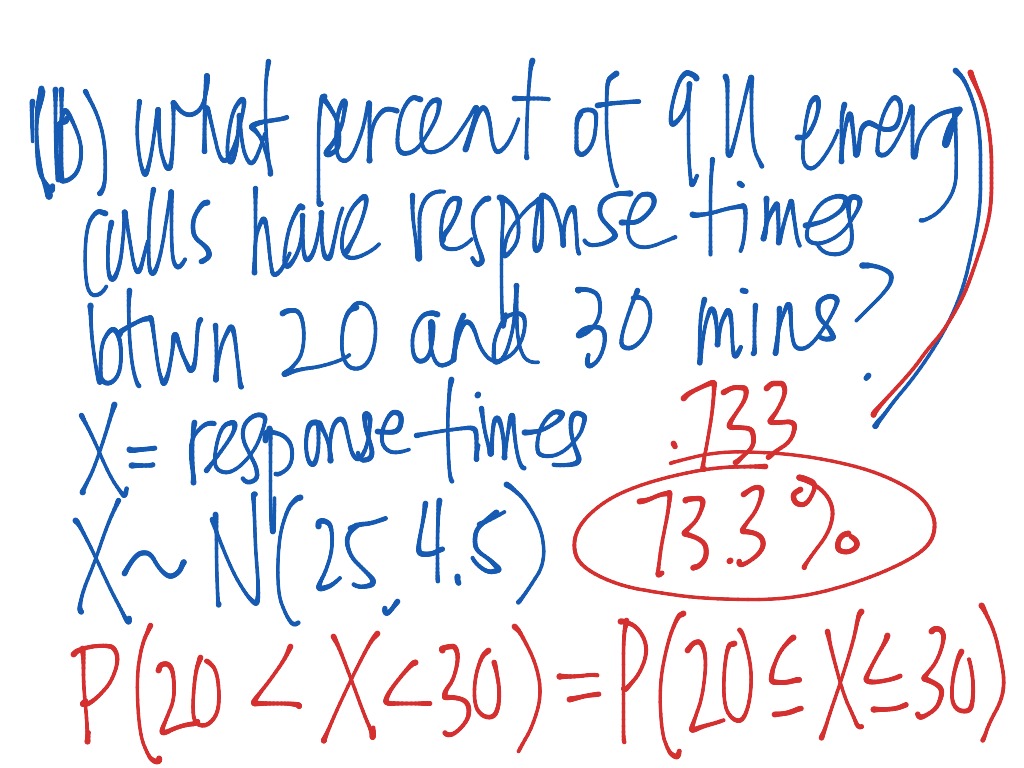 (b) what percent of 911 emerg
calls have response times
btwn 20 and 30 mins?
X = response times
.733
X ~ N(25, 4.5)
73.3%
P(20 < X < 30) = P(20 ≤ X ≤ 30)